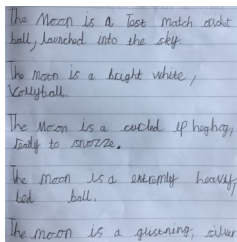 The Moon is a lost match cricket
ball, launched into the sky.
The moon is a bright white,
Vollyball.
The Moon is a curled up heghog,
ready to snozze.
The moon is a extremly heavy,
led ball.
The moon is a glistning, silver